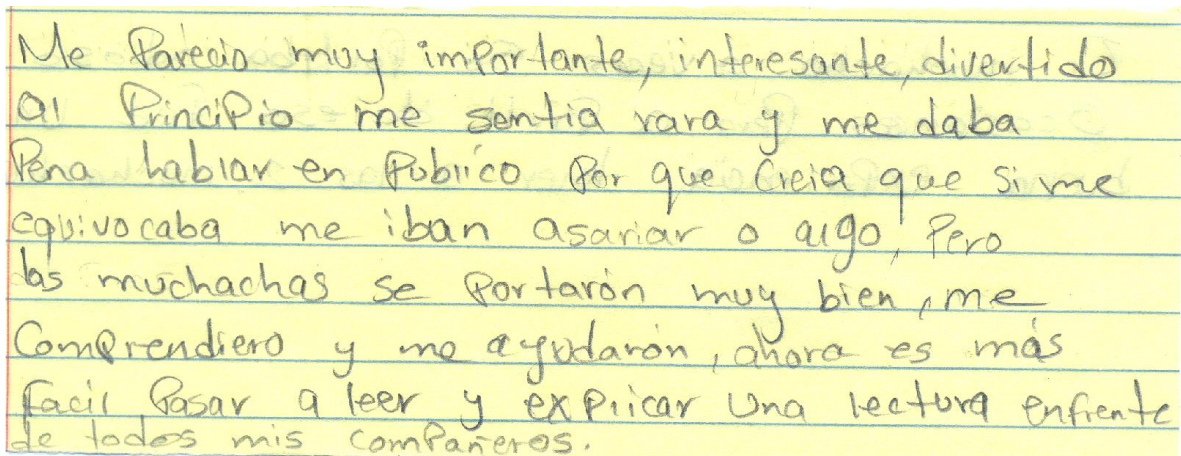 Me Parecio muy importante, interesante, divertido
al Principio me sentia rara y me daba
Pena hablar en Publico Por que creia que si me
equivocaba me iban asariar o algo, Pero
las muchachas se Portarón muy bien, me
Comprendiero y me ayudarón, ahora es más
facil Pasar a leer y explicar una lectura enfrente
de todos mis compañeros.